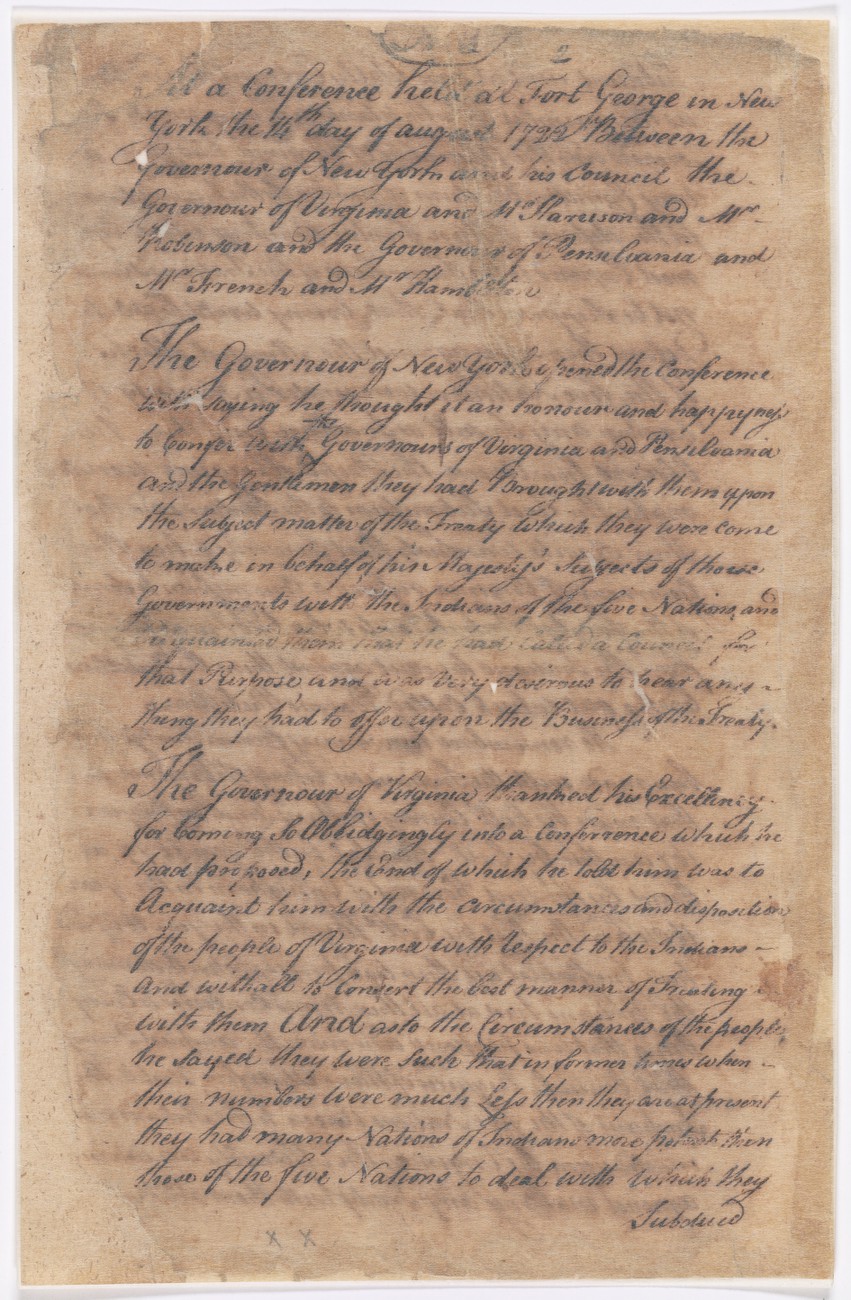 2
At a Conference held at Fort George in New
York the 14th day of august 1722 Between the
Governour of New York and his Council the
Governour of Virginia and Mr Harrison and Mr
Robinson and the Governour of Pensilvania and
Mr French and Mr Hamilton
The Governour of New York opened the Conference
with saying he thought it an honour and happyness
to Confer with the Governours of Virginia and Pensilvania
and the Gentlemen they had Brought with them upon
the Subject matter of the Treaty which they were come
to make in behalf of his Majesty's Subjects of those
Governments with the Indians of the five Nations, and
Acquainted them that he had Called a Council for
that Purpose, and was very desirous to hear any
thing they had to offer upon the Business of the Treaty.
The Governour of Virginia thanked his Excellency
for Coming So Obbidgingly into a Conferrence which he
had proposed, the End of which he told him was to
Acquaint him with the circumstances and disposition
of the people of Virginia with respect to the Indians
and withall to Consert the best manner of Treating
with them And as to the Circumstances of the people
he sayed they were such that in former times when
their numbers were much Less then they are at present
they had many Nations of Indians more potent then
those of the five Nations to deal with which they
Subdued
x x